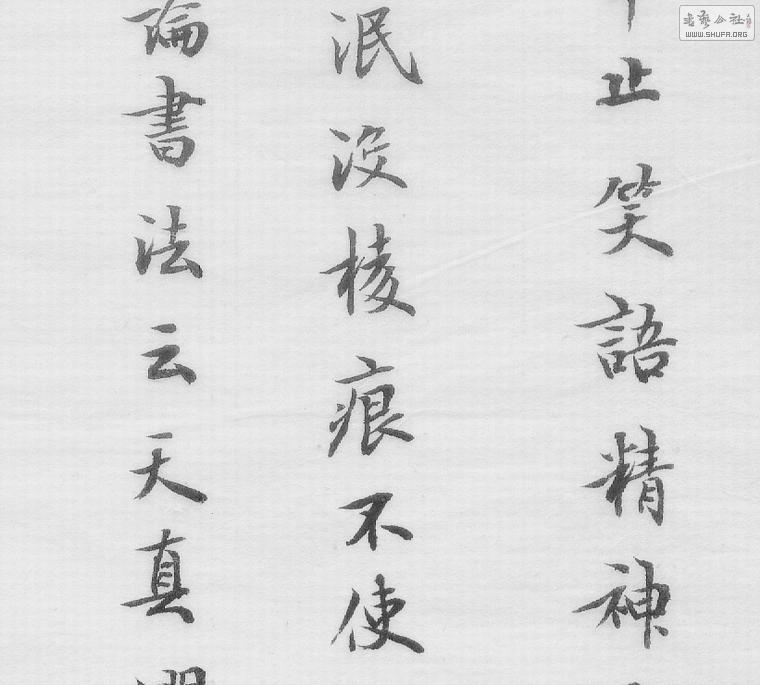 止笑語精神
泯没棱痕不使
論書法云天真
書藝公社
WWW.SHUFA.ORG